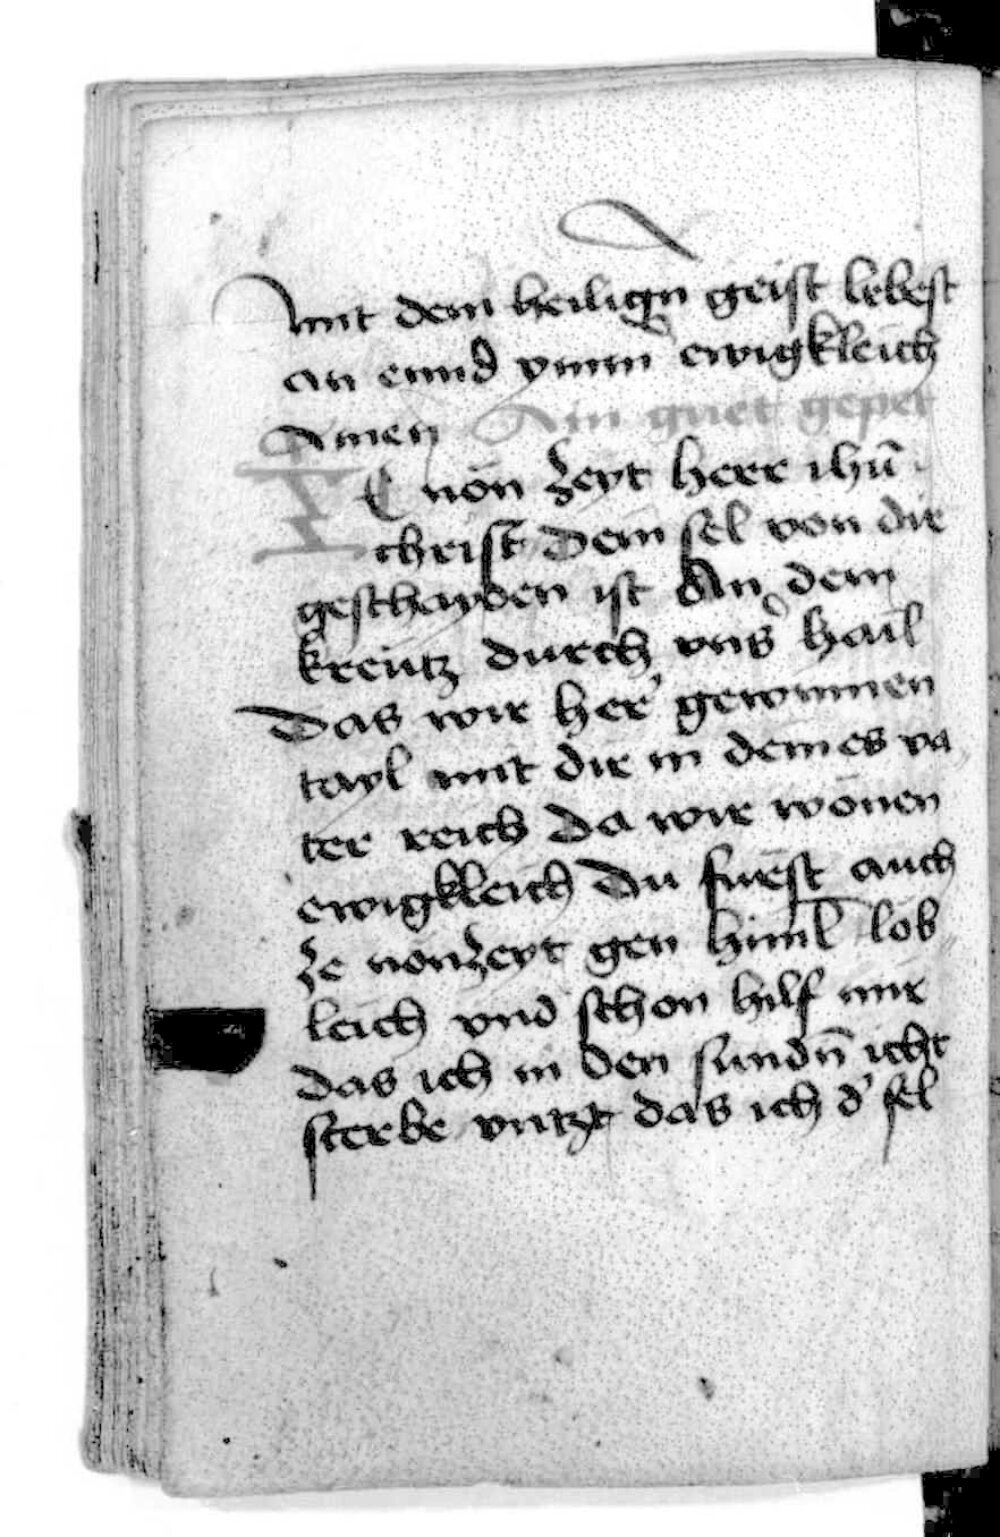 mit dem heilign geist lebest
an ennd ymm ewigkleich
Amen Ain guet gepet
ZE non zeyt herr ihū
christ dein sel von dir
geschayden ist An dem
kreutz durch vns hail
Das wir her gewinnen
tayl mit dir in deines va
ter reich da wir wonen
ewigkleich Du fuerst auch
ze nonzeyt gen himl lob
leich vnd schon hilf mir
das ich in den sundn̄ icht
sterbe vntzt das ich d' sel